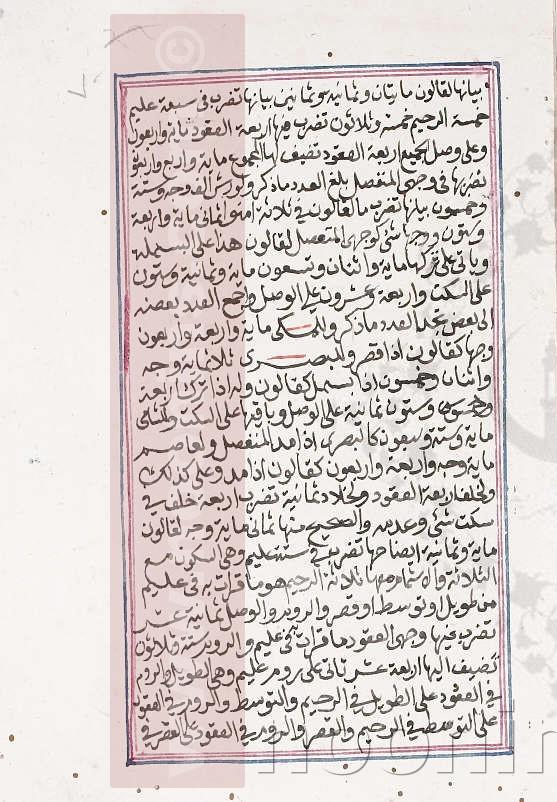 بيانها لقالون مايتان وثمانية وثمانين بيانها تضرب في سبعة عليم
خمسة الرحيم خمسة وثلاثون تضرب فيها اربعة العقود ماية واربعون
وعلى وصل الجميع اربعة العقود تضيف لها المجموع ماية واربع واربعون
تضربها في وجهي المنفصل بلغ العدد ما ذكر ولورش الف وجه وستة
وخمسون بيانها تضرب ما لقالون في ثلاثة امنوا ثماني ماية واربعة
وستون ووجها شئ كوجهي المنفصل لقالون هذا على البسملة
وياتي على تركها ماية واثنان وتسعون ماية وثمانية وستون
على السكت واربعة وعشرون على الوصل واجمع العدد بعضه
الى بعض تجد العدد ما ذكر وللمكي ماية واربعة واربعون
وجها كقالون اذا قصر وللبصري ثلاثماية وجه
واثنان وخمسون اذا بسمل كقالون وله اذا ترك اربعة
وستون ثمانية على الوصل وباقيها على السكت
ماية وستة وسبعون كالبصري اذا مد المنفصل ولعاصم
ماية وجه واربعة واربعون كقالون اذا مد وعلى كذلك
ولخلف اربعة العقود ولخلاد ثمانية تضرب اربعة خلف في
سكت شئ وعدمه والصحيح منها ثماني ماية وجه لقالون
ماية وثمانية ايضاحها تضرب في ستة عليم وهي السكون مع
الثلاثة والاشمام معها ثلاثة الرحيم هو ما قرات به في عليم
من طويل او توسط او قصر والروم والوصل ثمانية عشر
تضرب فيها وجهي العقود ما قرات في عليم والروم ستة وثلاثون
تضيف اليها اربعة عشر تاتي على روم عليم وهي الطويل والروم
في العقود على الطويل في الرحيم والتوسط والروم في العقود
على التوسط في الرحيم والقصر والروم في العقود على القصر في
noorin